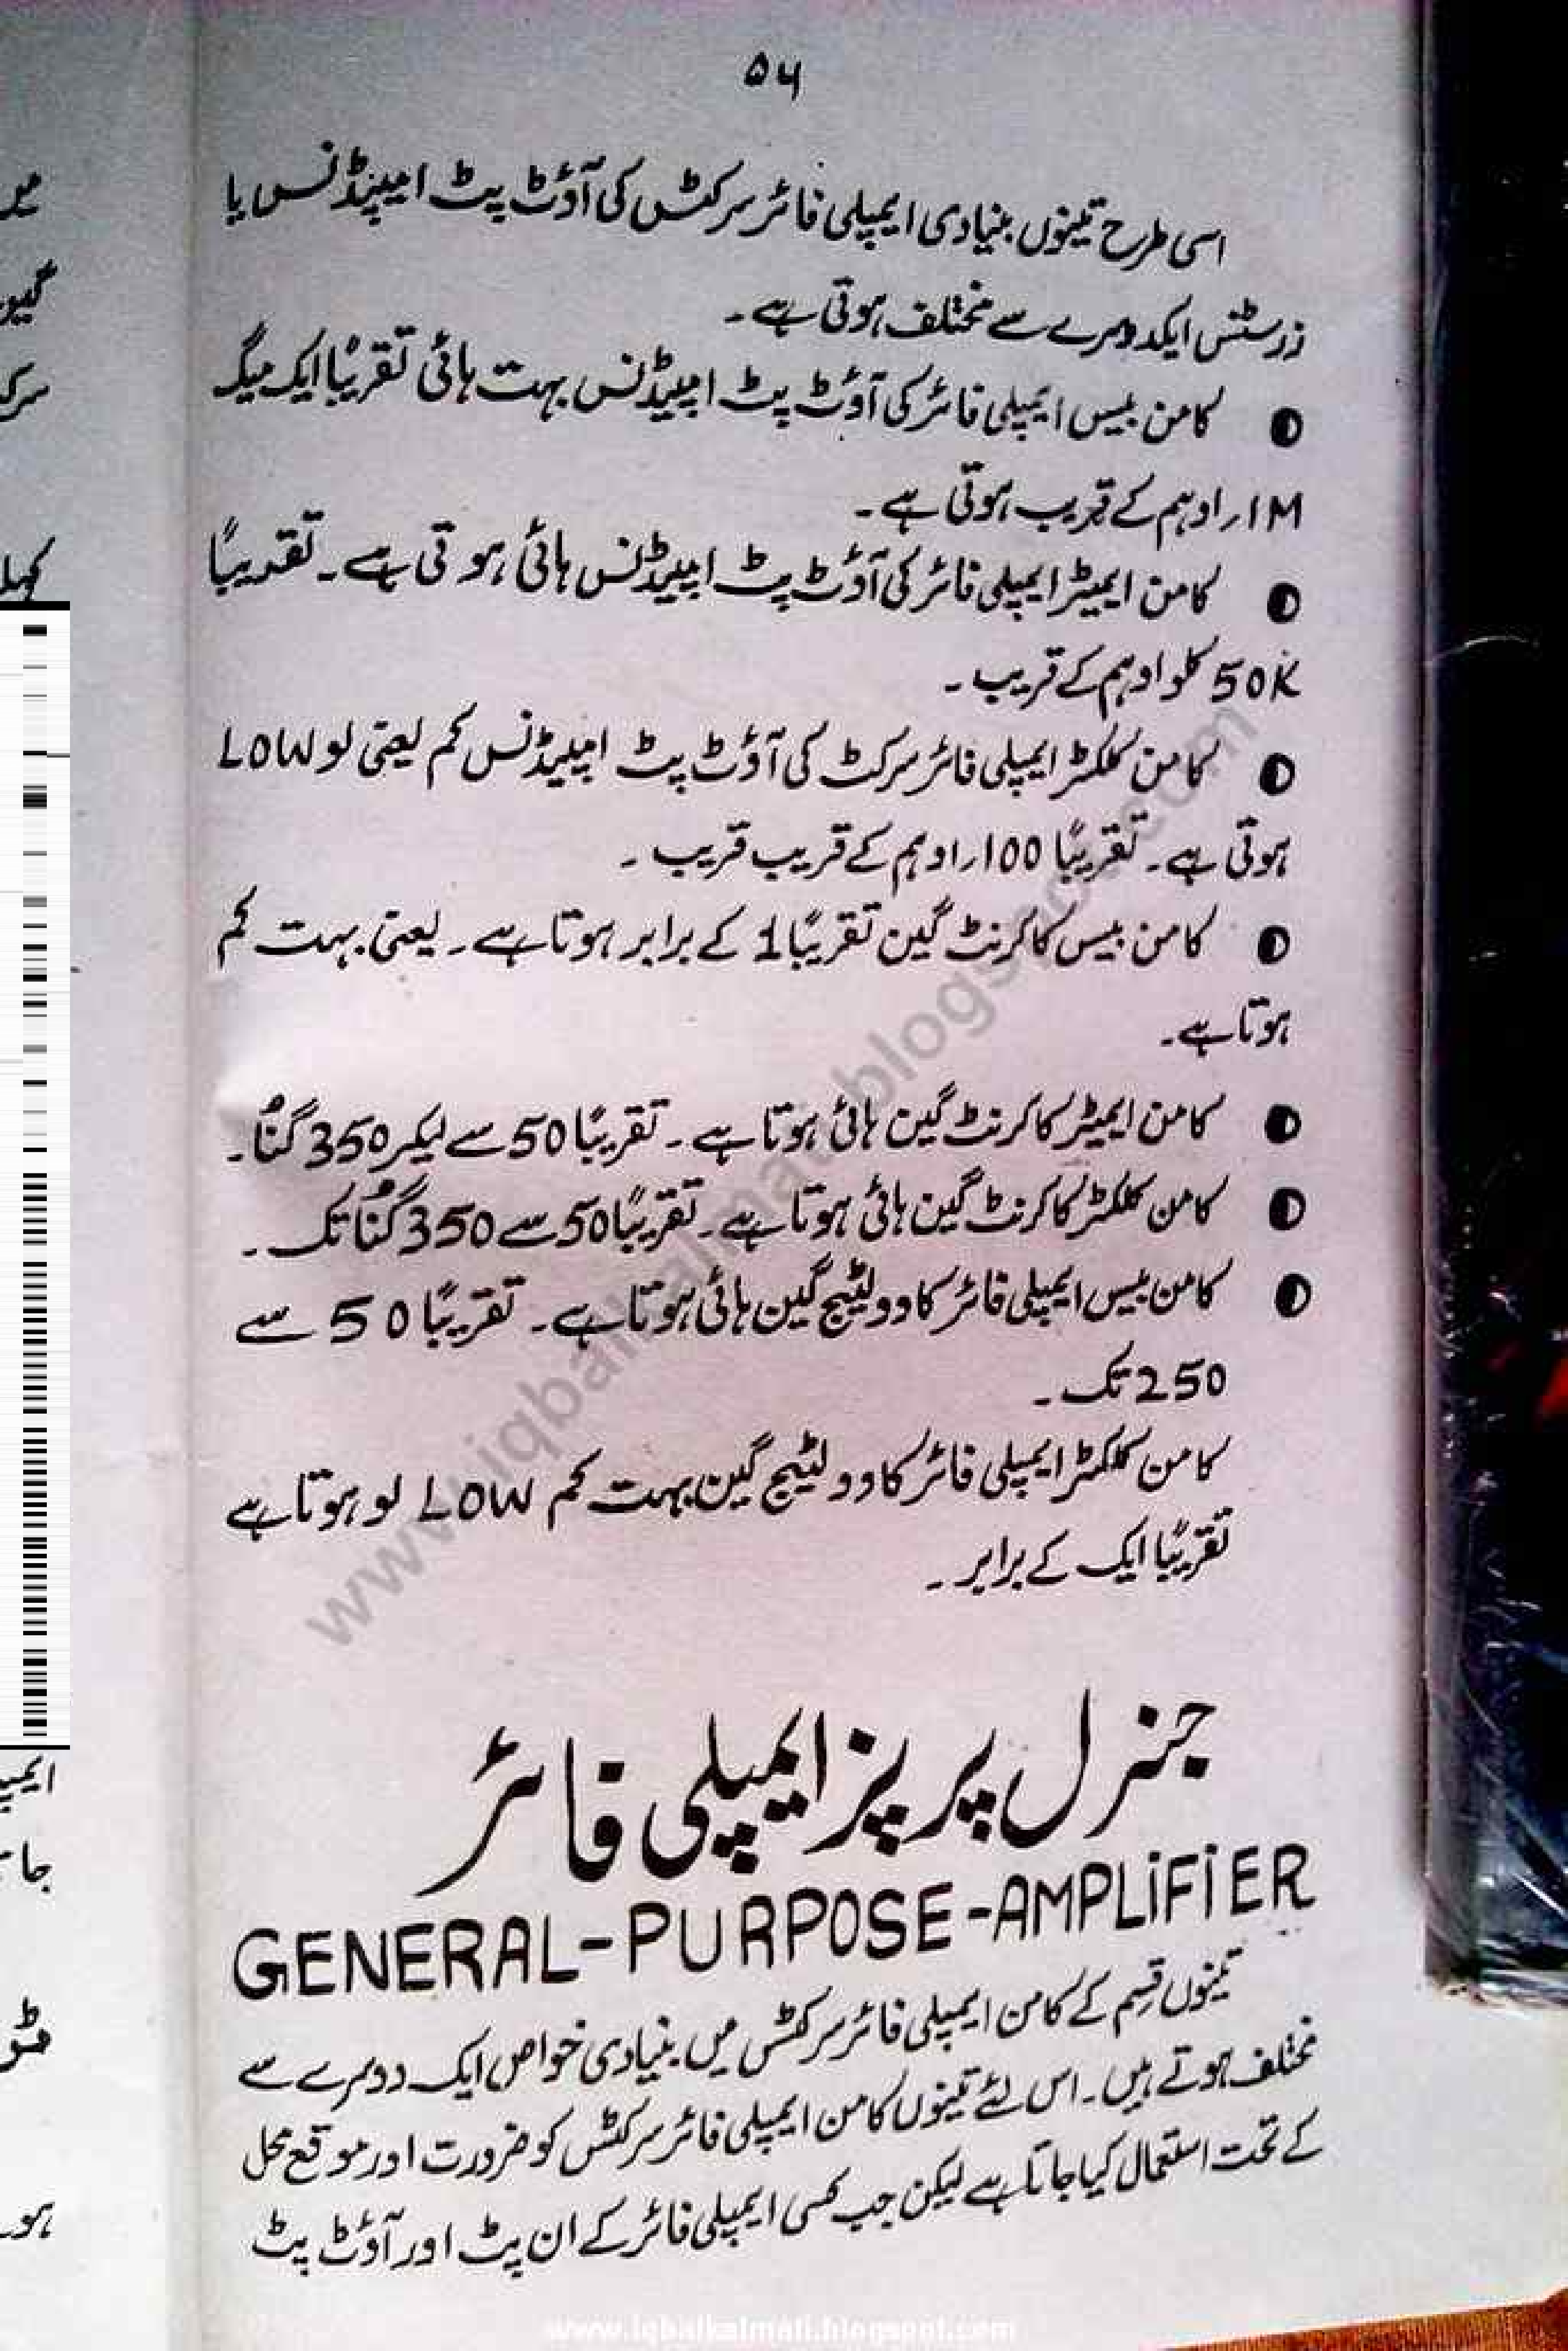 ۵۶
اسی طرح تینوں بنیادی ایمپلی فائر سرکٹس کی آؤٹ پٹ امپیڈنس یا
زرسٹنس ایکدوسرے سے مختلف ہوتی ہے۔
کامن بیس ایمپلی فائر کی آؤٹ پٹ امپیڈنس بہت ہائی تقریباً ایک میگ
1M ر اوہم کے قریب ہوتی ہے۔
کامن ایمیٹر ایمپلی فائر کی آؤٹ پٹ امپیڈنس ہائی ہوتی ہے۔ تقریباً
50K کلو اوہم کے قریب۔
کامن کلکٹر ایمپلی فائر سرکٹ کی آؤٹ پٹ امپیڈنس کم یعنی لو LOW
ہوتی ہے۔ تقریباً 100 ر اوہم کے قریب قریب۔
کامن بیس کا کرنٹ گین تقریباً 1 کے برابر ہوتا ہے۔ یعنی بہت کم
ہوتا ہے۔
کامن ایمیٹر کا کرنٹ گین ہائی ہوتا ہے۔ تقریباً 50 سے لیکر 350 گُنا۔
کامن کلکٹر کا کرنٹ گین ہائی ہوتا ہے۔ تقریباً 50 سے 350 گُنا تک۔
کامن بیس ایمپلی فائر کا وولٹیج گین ہائی ہوتا ہے۔ تقریباً 50 سے
250 تک۔
کامن کلکٹر ایمپلی فائر کا وولٹیج گین بہت کم LOW لو ہوتا ہے
تقریباً ایک کے برابر۔
جنرل پرپز ایمپلی فائر
GENERAL-PURPOSE-AMPLiFiER
تینوں قسم کے کامن ایمپلی فائر سرکٹس میں بنیادی خواص ایک دوسرے سے
مختلف ہوتے ہیں۔ اس لئے تینوں کامن ایمپلی فائر سرکٹس کو ضرورت اور موقع محل
کے تحت استعمال کیا جاتا ہے لیکن جب کسی ایمپلی فائر کے ان پٹ اور آؤٹ پٹ
www.iqbalkalmati.blogspot.com
www.iqbalkalmati.blogspot.com